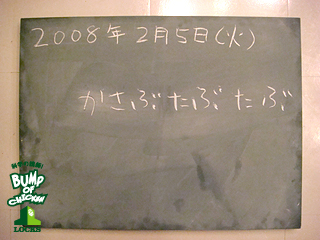 2008年2月5日(火)
かさぶたぶたぶ
BUMP
OF
CHICKEN
LOCKS